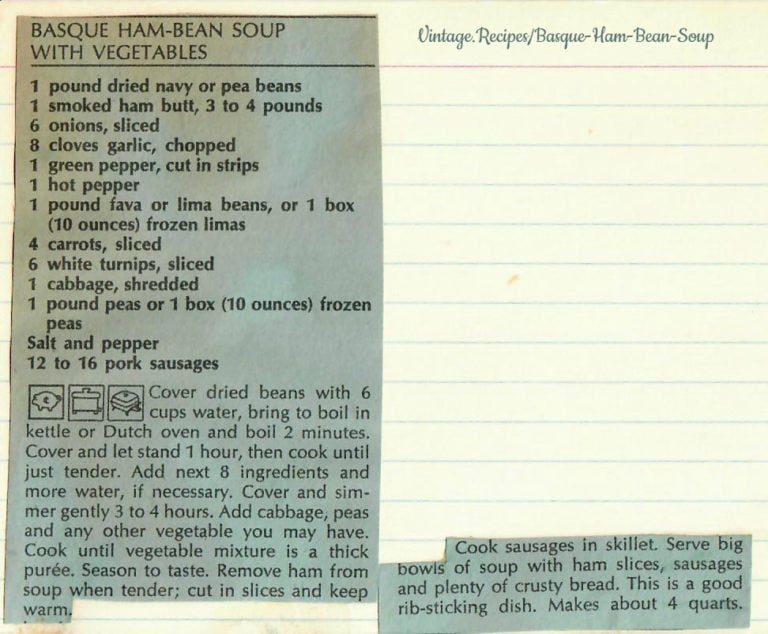 BASQUE HAM-BEAN SOUP
WITH VEGETABLES
Vintage.Recipes/Basque-Ham-Bean-Soup
1 pound dried navy or pea beans
1 smoked ham butt, 3 to 4 pounds
6 onions, sliced
8 cloves garlic, chopped
1 green pepper, cut in strips
1 hot pepper
1 pound fava or lima beans, or 1 box
(10 ounces) frozen limas
4 carrots, sliced
6 white turnips, sliced
1 cabbage, shredded
1 pound peas or 1 box (10 ounces) frozen
peas
Salt and pepper
12 to 16 pork sausages
Cover dried beans with 6
cups water, bring to boil in
kettle or Dutch oven and boil 2 minutes.
Cover and let stand 1 hour, then cook until
just tender. Add next 8 ingredients and
more water, if necessary. Cover and sim-
mer gently 3 to 4 hours. Add cabbage, peas
and any other vegetable you may have.
Cook until vegetable mixture is a thick
purée. Season to taste. Remove ham from
soup when tender; cut in slices and keep
warm.
Cook sausages in skillet. Serve big
bowls of soup with ham slices, sausages
and plenty of crusty bread. This is a good
rib-sticking dish. Makes about 4 quarts.